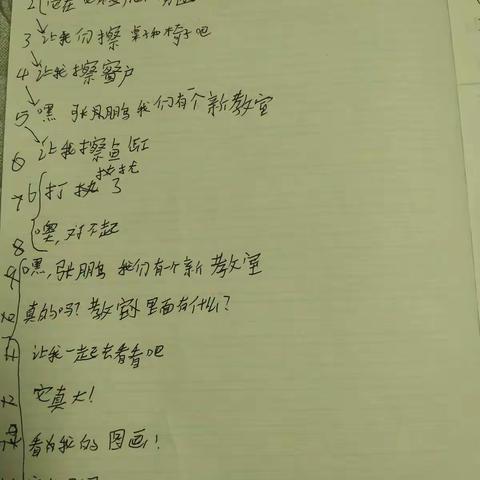 3 让我们擦 桌子和椅子吧
4 让我擦窗户
5 嘿 张鹏 我们有一个新教室
6 让我擦鱼缸
扰
7 6 打 扰 了
8 噢,对不起
9 嘿,张鹏 我们有一个新 教室
真的吗? 教室 里面有什么?
11 让我一起去看看吧
它真大!
看 我的 图画!